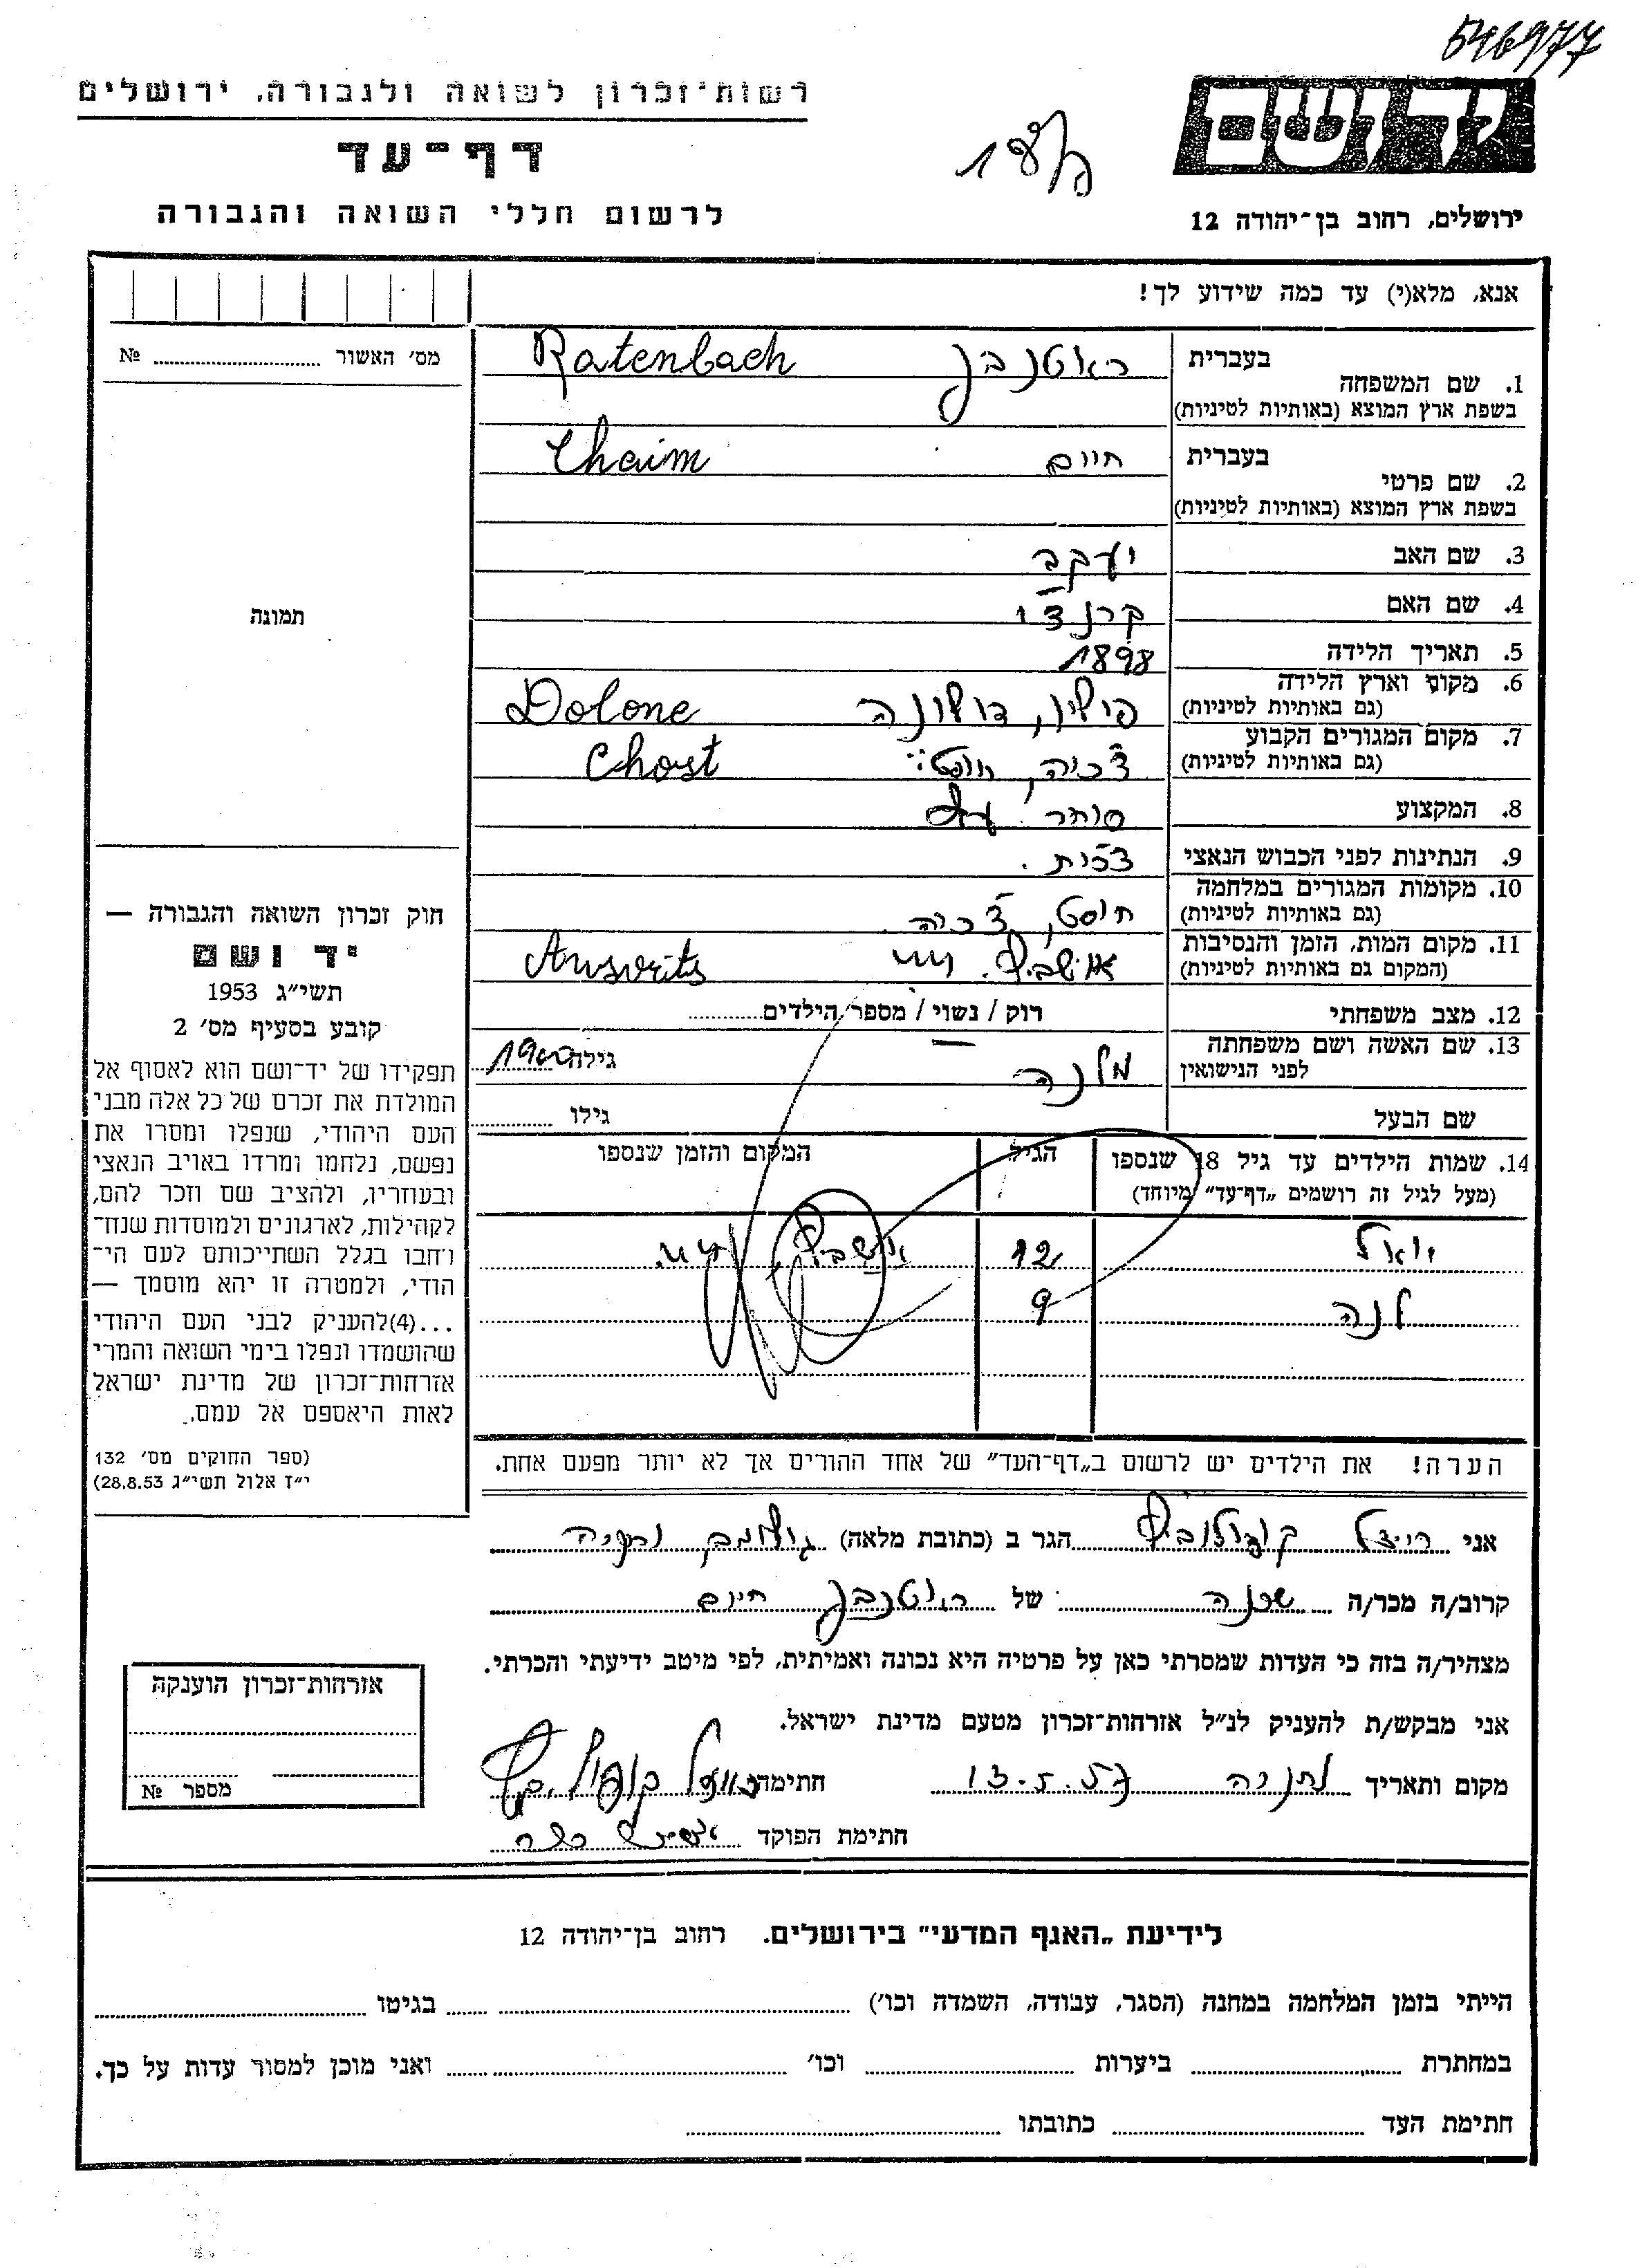 546977
רשות־זכרון לשואה ולגבורה, ירושלים
דף־עד
לרשום חללי השואה והגבורה
ירושלים, רחוב בן־יהודה 12
אנא, מלא(י) עד כמה שידוע לך!
מס׳ האשור № 
1. שם המשפחה בעברית ראטנבך Ratenbach
בשפת ארץ המוצא (באותיות לטיניות)
2. שם פרטי בעברית חיים Chaim
בשפת ארץ המוצא (באותיות לטיניות)
3. שם האב יעקב
4. שם האם
5. תאריך הלידה 1898
6. מקום וארץ הלידה פולין, דולונה Dolone
(גם באותיות לטיניות)
7. מקום המגורים הקבוע צ׳כיה, חוסט Chost
(גם באותיות לטיניות)
8. המקצוע סוחר
9. הנתינות לפני הכבוש הנאצי צ׳כית.
10. מקומות המגורים במלחמה חוסט, צ׳כיה
(גם באותיות לטיניות)
11. מקום המות, הזמן והנסיבות אושביץ. Ausvrits
(המקום גם באותיות לטיניות)
12. מצב משפחתי רוק / נשוי / מספר הילדים
13. שם האשה ושם משפחתה מלנה גילה 1900
לפני הנישואין
שם הבעל גילו
14. שמות הילדים עד גיל 18 שנספו הגיל המקום והזמן שנספו
(מעל לגיל זה רושמים „דף־עד" מיוחד)
יואל 12 אושביץ
לנה 9
הערה! את הילדים יש לרשום ב„דף־העד" של אחד ההורים אך לא יותר מפעם אחת.
תמונה
חוק זכרון השואה והגבורה —
יד ושם
תשי״ג 1953
קובע בסעיף מס׳ 2
תפקידו של יד־ושם הוא לאסוף אל
המולדת את זכרם של כל אלה מבני
העם היהודי, שנפלו ומסרו את
נפשם, נלחמו ומרדו באויב הנאצי
ובעוזריו, ולהציב שם וזכר להם,
לקהילות, לארגונים ולמוסדות שנח־
רחבו בגלל השתייכותם לעם הי־
הודי, ולמטרה זו יהא מוסמך —
...(4)להעניק לבני העם היהודי
שהושמדו ונפלו בימי השואה והמרי
אזרחות־זכרון של מדינת ישראל
לאות היאספם אל עמם.
(ספר החוקים מס׳ 132
י״ז אלול תשי״ג 28.8.53)
אני רייזל הגר ב (כתובת מלאה)
קרוב/ה מכר/ה שכנה של רוטנבך חיים
מצהיר/ה בזה כי העדות שמסרתי כאן על פרטיה היא נכונה ואמיתית, לפי מיטב ידיעתי והכרתי.
אני מבקש/ת להעניק לנ״ל אזרחות־זכרון מטעם מדינת ישראל.
מקום ותאריך נתניה 13.5.57 חתימה
חתימת הפוקד
אזרחות־זכרון הוענקה
מספר №
לידיעת „האגף המדעי" בירושלים. רחוב בן־יהודה 12
הייתי בזמן המלחמה במחנה (הסגר, עבודה, השמדה וכו׳) בגיטו
במחתרת ביערות וכו׳ ואני מוכן למסור עדות על כך.
חתימת העד כתובתו